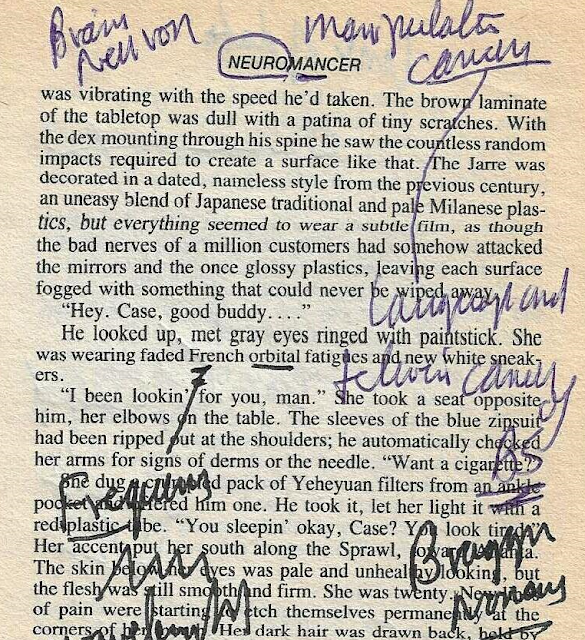 Brain
NEUROMANCER
was vibrating with the speed he'd taken. The brown laminate
of the tabletop was dull with a patina of tiny scratches. With
the dex mounting through his spine he saw the countless random
impacts required to create a surface like that. The Jarre was
decorated in a dated, nameless style from the previous century,
an uneasy blend of Japanese traditional and pale Milanese plas-
tics, but everything seemed to wear a subtle film, as though
the bad nerves of a million customers had somehow attacked
the mirrors and the once glossy plastics, leaving each surface
fogged with something that could never be wiped away.
"Hey. Case, good buddy...."
He looked up, met gray eyes ringed with paintstick. She
was wearing faded French orbital fatigues and new white sneak-
ers.
"I been lookin' for you, man." She took a seat opposite
him, her elbows on the table. The sleeves of the blue zipsuit
had been ripped out at the shoulders; he automatically checked
her arms for signs of derms or the needle. "Want a cigarette?"
She dug a pack of Yeheyuan filters from an ankle
pocket and offered him one. He took it, let her light it with a
red plastic tube. "You sleepin' okay, Case? You look
Her accent put her south along the Sprawl,
The skin below her eyes was pale and unhealthy-looking, but
the flesh was still smooth and firm. She was twenty. New
of pain were starting etch themselves permanently at the
corners of her Her dark hair was drawn back, held by